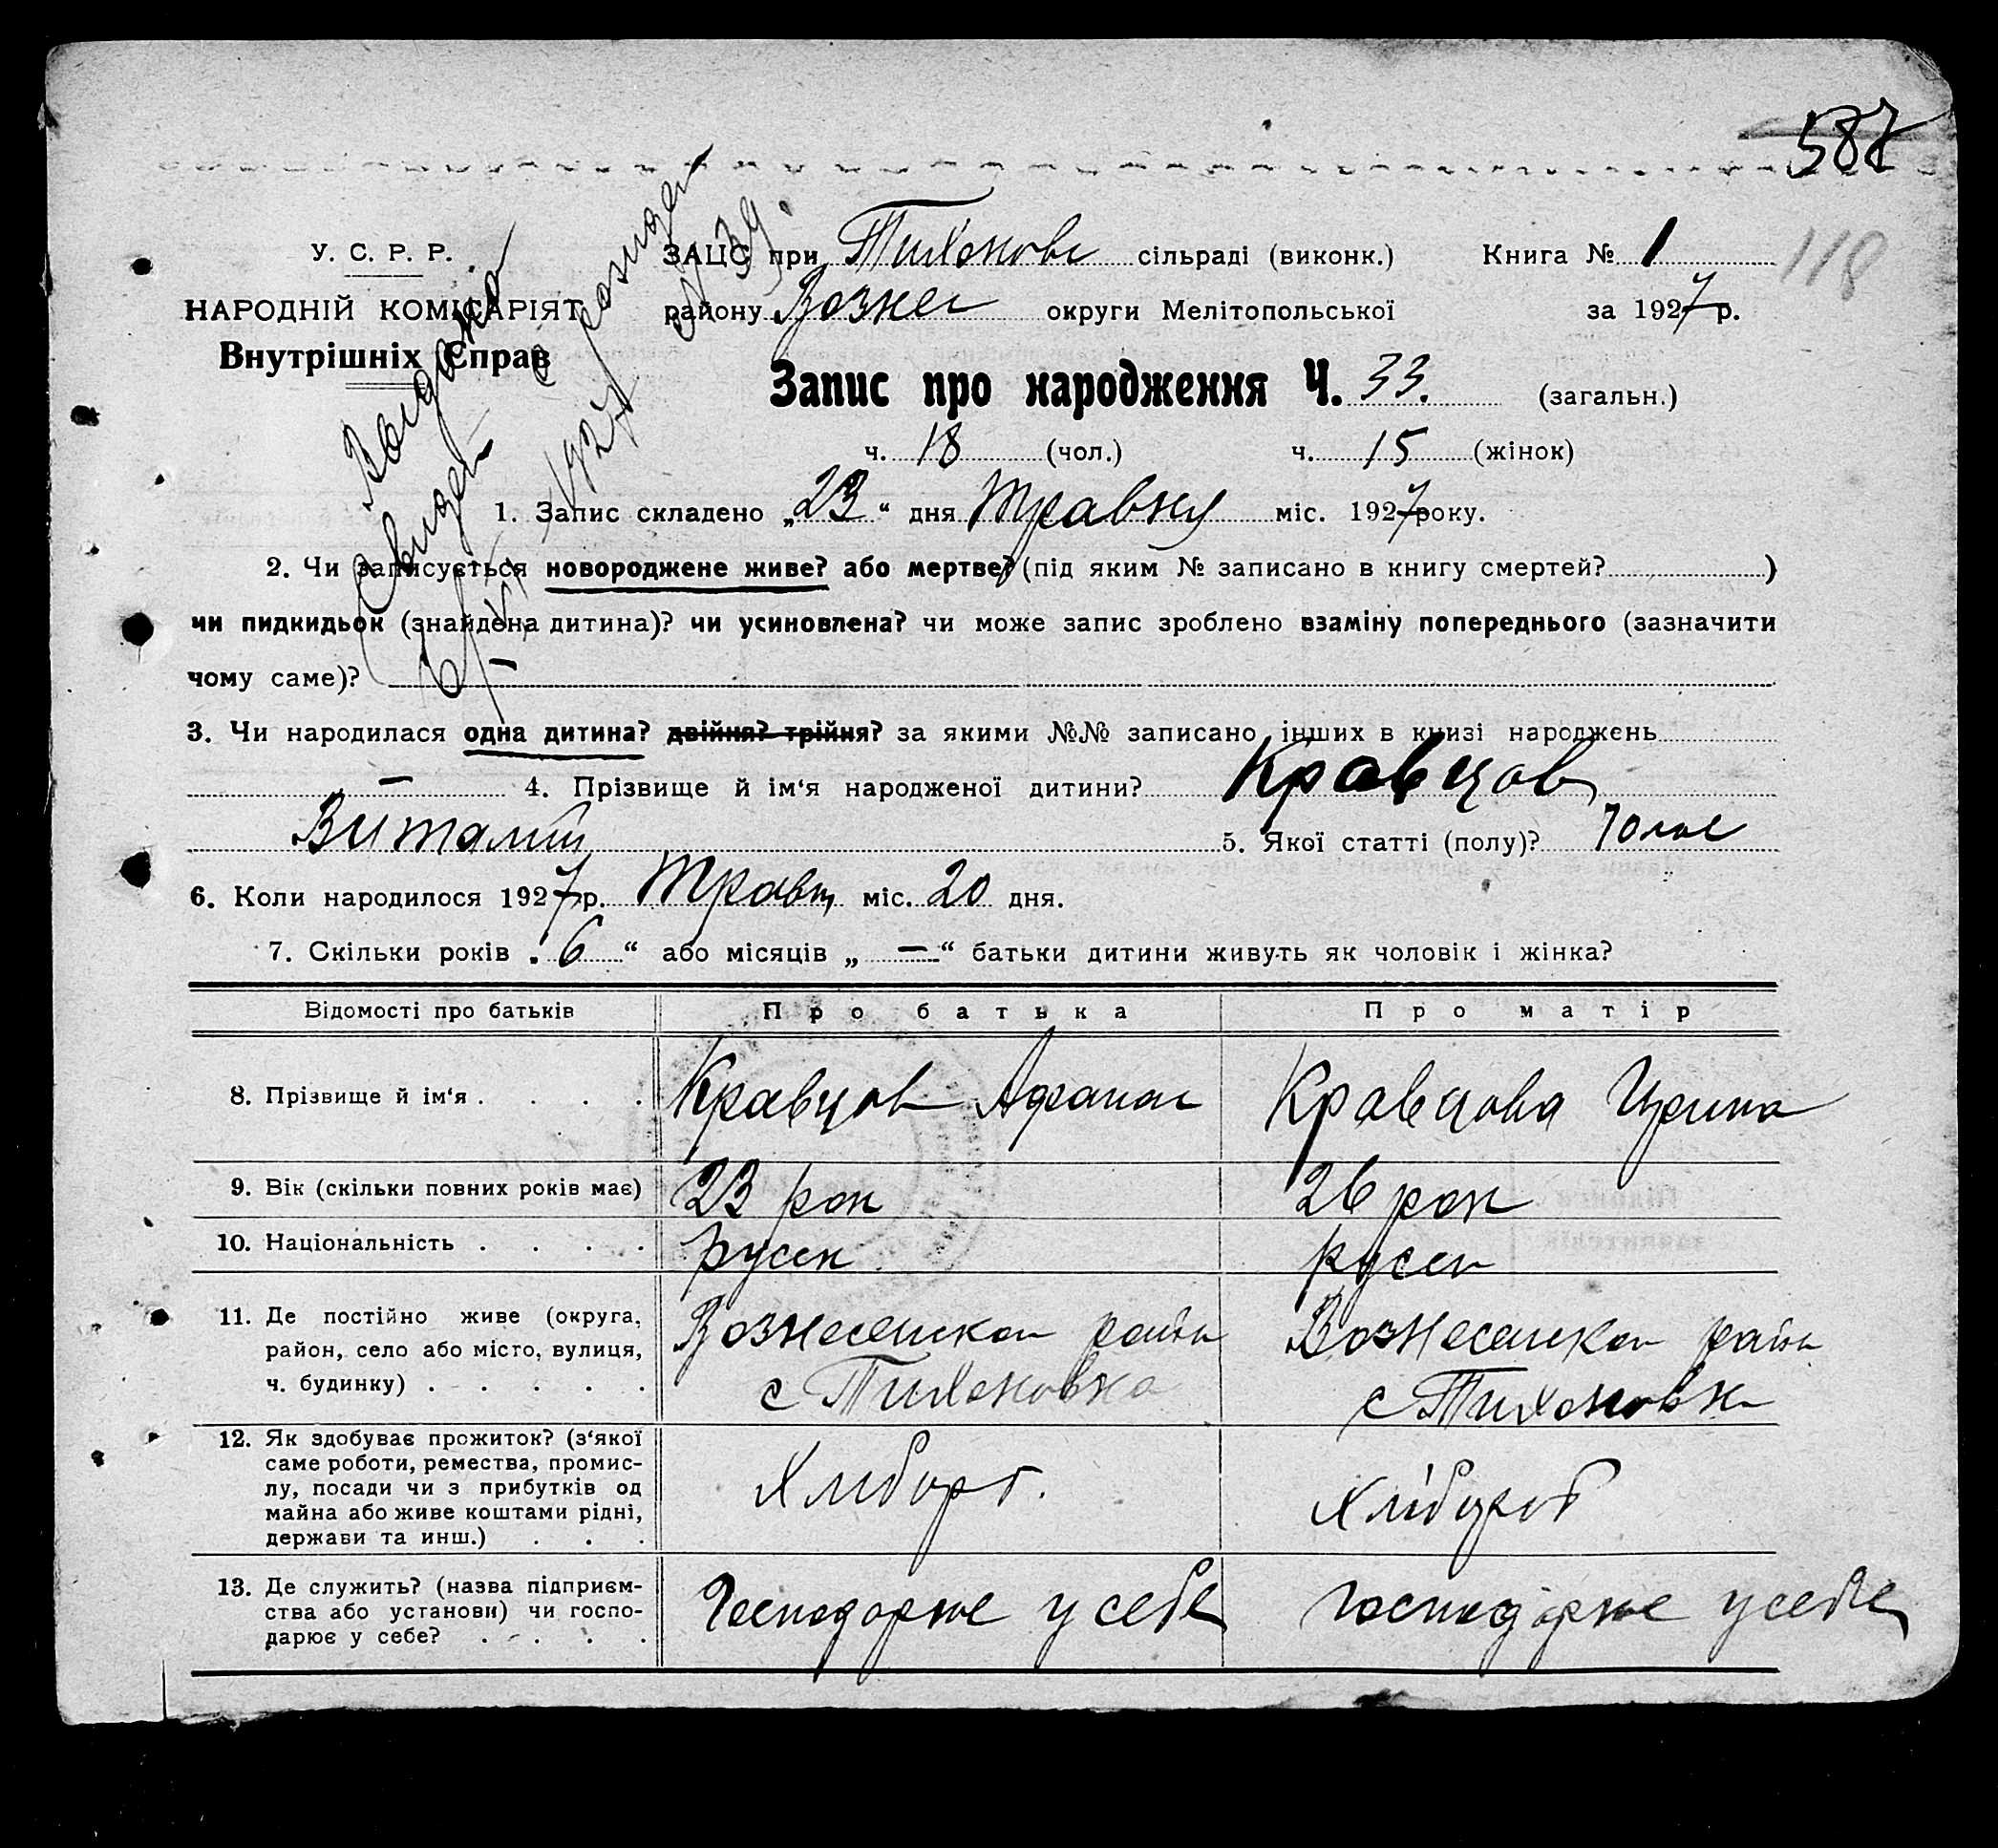 587
118
У. С. Р. Р.
НАРОДНІЙ КОМІСАРІЯТ
Внутрішніх Справ
Выдано
1927
№ 39
ЗАЦС при Тихонові сільраді (виконк.) Книга № 1
району Вознес округи Мелітопольської за 1927 р.
Запис про народження Ч. 33. (загальн.)
ч. 18 (чол.) ч. 15 (жінок)
1. Запис складено „23“ дня Травня міс. 1927 року.
2. Чи записується новороджене живе? або мертве? (під яким № записано в книгу смертей? )
чи пидкидьок (знайдена дитина)? чи усиновлена? чи може запис зроблено взаміну попереднього (зазначити
чому саме)? —
3. Чи народилася одна дитина? двійня? трійня? за якими №№ записано інших в книзі народжень
— 4. Прізвище й ім‘я народженої дитини? Кравцов
Виталий 5. Якої статті (полу)?
6. Коли народилося 1927 р. Травн міс. 20 дня.
7. Скільки років „6“ або місяців „—“ батьки дитини живуть як чоловік і жінка?
Відомості про батьків Про батька Про матір
8. Прізвище й ім‘я . . . . Кравцов Афанас Кравцова Ирина
9. Вік (скільки повних років має) 23 рок 26 рок
10. Національність . . . . русск русск
11. Де постійно живе (округа,
район, село або місто, вулиця,
ч. будинку) . . . . .
Вознесенском район
с Тихоновка
Вознесенском район
с Тихоновк
12. Як здобуває прожиток? (з‘якої
саме роботи, ремества, промис-
лу, посади чи з прибутків од
майна або живе коштами рідні,
держави та инш.) . . .
Хлибороб.
Хлібороб
13. Де служить? (назва підприєм-
ства або установи) чи госпо-
дарює у себе? . . . .
Господарює у себе
Господарює у себе